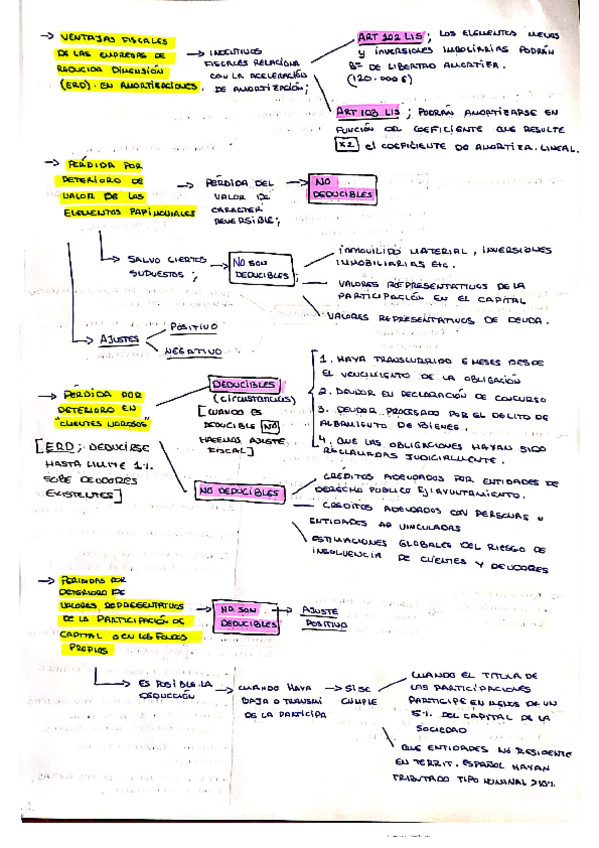 → VENTAJAS FISCALES
DE LAS EMPRESAS DE
REDUCIDA DIMENSIÓN
(ERD). EN AMORTIZACIONES.
→ INCENTIVOS
FISCALES RELACIONA
CON LA ACELERACIÓN
DE AMORTIZACIÓN;
ART 102 LIS; LOS ELEMENTOS NUEVOS
Y INVERSIONES IMBOLIARIAS PODRÁN
DE LIBERTAD AMORTIZA.
(120.000 €)
ART 103 LIS; PODRÁN AMORTIZARSE EN
FUNCIÓN DEL COEFICIENTE QUE RESULTE
X2 el COEFICIENTE DE AMORTIZA. LINEAL.
→ PÉRDIDA POR
DETERIORO DE
VALOR DE LOS
ELEMENTOS PATRIMONIALES
→ PÉRDIDA DEL
VALOR DE
CARÁCTER
REVERSIBLE;
→ NO
DEDUCIBLES
→ SALVO CIERTOS
SUPUESTOS;
→ NO SON
DEDUCIBLES;
INMOVILIDO MATERIAL, INVERSIONES
INMOBILIARIAS ETC.
VALORES REPRESENTATIVOS DE LA
PARTICIPACIÓN EN EL CAPITAL
VALORES REPRESENTATIVOS DE DEUDA.
→ AJUSTES
POSITIVO
NEGATIVO
→ PÉRDIDA POR
DETERIORO EN
"CLIENTES MOROSOS"
[ERD; DEDUCIRSE
HASTA LIMITE 1%
SOBE DEUDORES
EXISTENTES]
DEDUCIBLES
(circunstancias)
[CUANDO ES
DEDUCIBLE NO
HACEMOS AJUSTE
FISCAL]
1. HAYA TRANSCURRIDO 6 MESES DESDE
EL VENCIMIENTO DE LA OBLIGACIÓN
2. DEUDOR EN DECLARACIÓN DE CONCURSO
3. DEUDOR PROCESADO POR EL DELITO DE
ALBAMIENTO DE BIENES.
4. QUE LAS OBLIGACIONES HAYAN SIDO
RECLAMADAS JUDICIALMENTE.
NO DEDUCIBLES
CRÉDITOS ADEUDADOS POR ENTIDADES DE
DERECHO PÚBLICO Ej: AYUNTAMIENTO.
CREDITOS ADEUDADOS CON PERSONAS O
ENTIDADES VINCULADAS
ESTIMACIONES GLOBALES DEL RIESGO DE
INSOLVENCIA DE CLIENTES Y DEUDORES
→ PERDIDAS POR
DETERIORO DE
VALORES REPRESENTATIVOS
DE LA PARTICIPACIÓN DE
CAPITAL O EN LOS FONDOS
PROPIOS
→ NO SON
DEDUCIBLES
→ AJUSTE
POSITIVO
→ ES POSIBLE LA
DEDUCCIÓN
→ CUANDO HAYA
BAJA O TRANSMI
DE LA PARTICIPA
→ SI SE
CUMPLE
CUANDO EL TITULA DE
LAS PARTICIPACIONES
PARTICIPE EN MENOS DE UN
5% DEL CAPITAL DE LA
SOCIEDAD
QUE ENTIDADES NO RESIDENTE
EN TERRIT. ESPAÑOL HAYAN
TRIBUTADO TIPO NOMINAL >10%